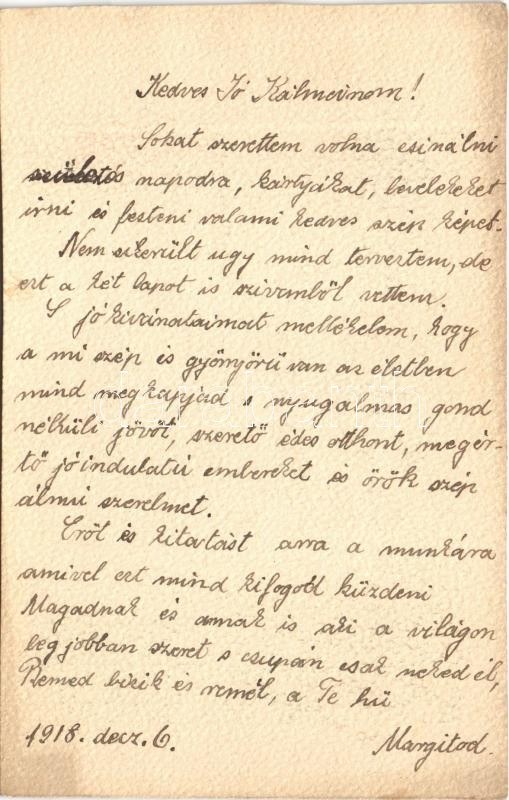 Kedves Jó Kálmánom!
Sokat szerettem volna csinálni
születés napodra, kártyákat, leveleket
irni és festeni valami kedves szép képet.
Nem sikerült ugy mind terveztem, de
ezt a két lapot is szivemből vettem.
S jókivánataimat mellékelem, hogy
a mi szép és gyönyörü van az életben
mind megkapjad s nyugalmas gond
nélküli jövőt, szerető édes otthont, megér-
tő jóindulatú embereket és örök szép
álmú szerelmet.
Eröt és kitartást arra a munkára
amivel ezt mind kifogod küzdeni
Magadnak és annak is aki a világon
legjobban szeret s csupán csak neked él,
Benned bizik és remél, a Te hü
1918. decz. 6. Margitod.